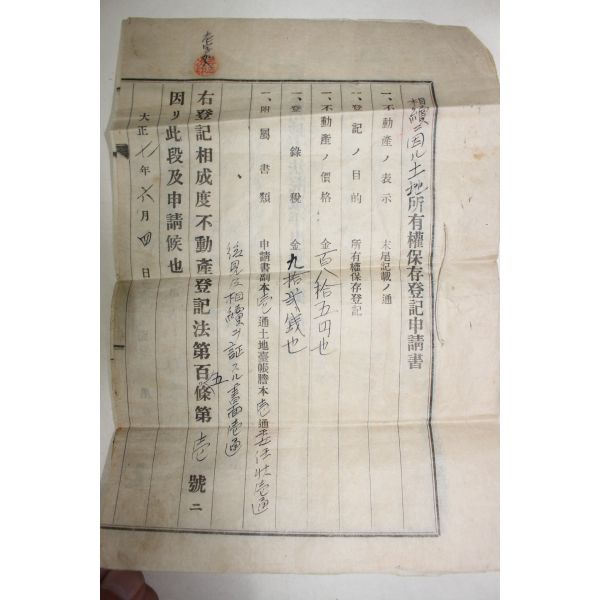 相續ニ因ル土地所有權保存登記申請書
一、不動產ノ表示 末尾記載ノ通
一、登記ノ目的 所有權保存登記
一、不動產ノ價格 金百八拾五円也
一、登錄稅 金九拾貳錢也
一、附屬書類 申請書副本壱通土地臺帳謄本壱通委任狀壱通
相續ヲ証スル書面壱通
右登記相成度不動產登記法第百五條第壱號ニ
因リ此段及申請候也
大正十一年六月四日